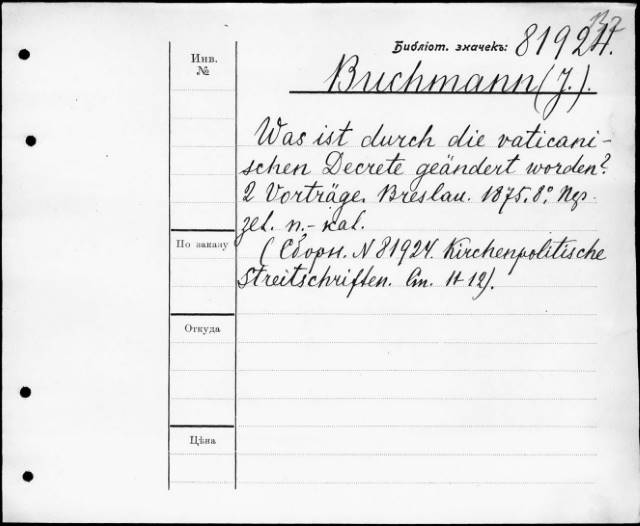 137
Библіот. значекъ: 81924.
Инв.
№
Buchmann (J.).
Was ist durch die vaticani-
schen Decrete geändert worden?
2 Vorträge. Breslau. 1875. 8°.
zel. n.-kat.
По заказу
(Сборн. N 81924. Kirchenpolitische
Streitschriften. Ст. 11-12).
Откуда
Цѣна